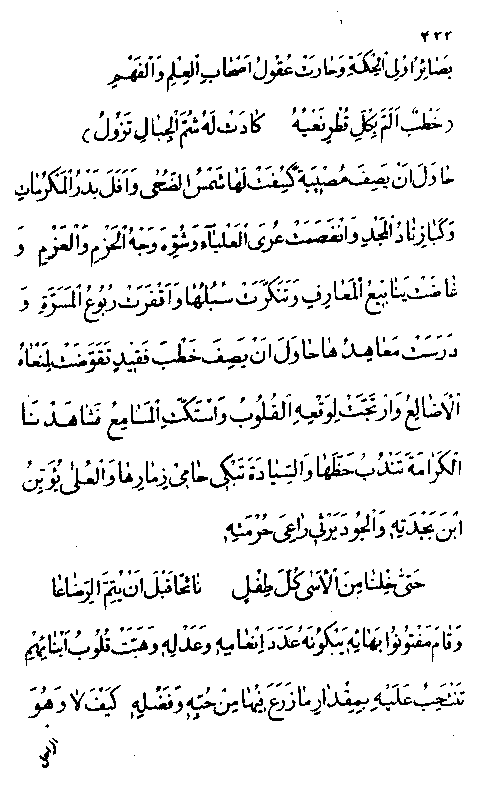 ٤٢٢
بَصَائِرُ اُولِى الْحِكْمَةِ وَحَارَتْ عُقُولُ اَصْحَابِ الْعِلْمِ وَالْفَهْمِ
(خَطْبٌ اَلَمَّ بِكُلِّ قُطْرٍ نَعْيُهُ كَادَتْ لَهُ شُمُّ الْجِبَالِ تَزُولُ)
حَاوَلَ اَنْ يَصِفَ مُصِيبَةً كُسِفَتْ لَهَا شَمْسُ الضُّحٰى وَاَفَلَ بَدْرُ الْمَكْرُمَاتِ
وَكَبَا زِنَادُ الْمَجْدِ وَانْفَصَمَتْ عُرَى الْعَلْيَآءِ وَشُوِّهَ وَجْهُ الْحَزْمِ وَالْعَزْمِ وَ
غَاضَتْ يَنَابِيعُ الْمَعَارِفِ وَتَنَكَّرَتْ سُبُلُهَا وَاَقْفَرَتْ رُبُوعُ الْمَسَرَّةِ وَ
دَرَسَتْ مَعَاهِدُهَا حَاوَلَ اَنْ يَصِفَ خَطْبَ فَقِيدٍ تَقَوَّضَتْ لِمَنْعَاهُ
الْاَضَالِعُ وَارْتَجَّتْ لِوَقْعِهِ الْقُلُوبُ وَاسْتَكَّتِ الْمَسَامِعُ فَشَاهَدْنَا
الْكَرَامَةَ تَنْدُبُ حَظَّهَا وَالسِّيَادَةَ تَبْكِى حَامِىَ ذِمَارِهَا وَالْعُلٰى يُؤَبِّنُ
ابْنَ بَجْدَتِهِ وَالْجُودَ يَرْثِى رَاعِىَ حُرْمَتِهِ
حَتّٰى خِلْنَا مِنَ الْاَسٰى كُلَّ طِفْلٍ نَائِحًا قَبْلَ اَنْ يُتِمَّ الرَّضَاعَا
وَقَامَ مَفْتُونُوا بَهَائِهِ يَبْكُونَهُ عَدَدَ اِنْعَامِهِ وَعَدْلِهِ وَهَبَّتْ قُلُوبُ اَبْنَائِهِمْ
تَنْتَحِبُ عَلَيْهِ بِمِقْدَارِ مَا زَرَعَ فِيهَا مِنْ حُبِّهِ وَفَضْلِهِ كَيْفَ لَا وَهُوَ